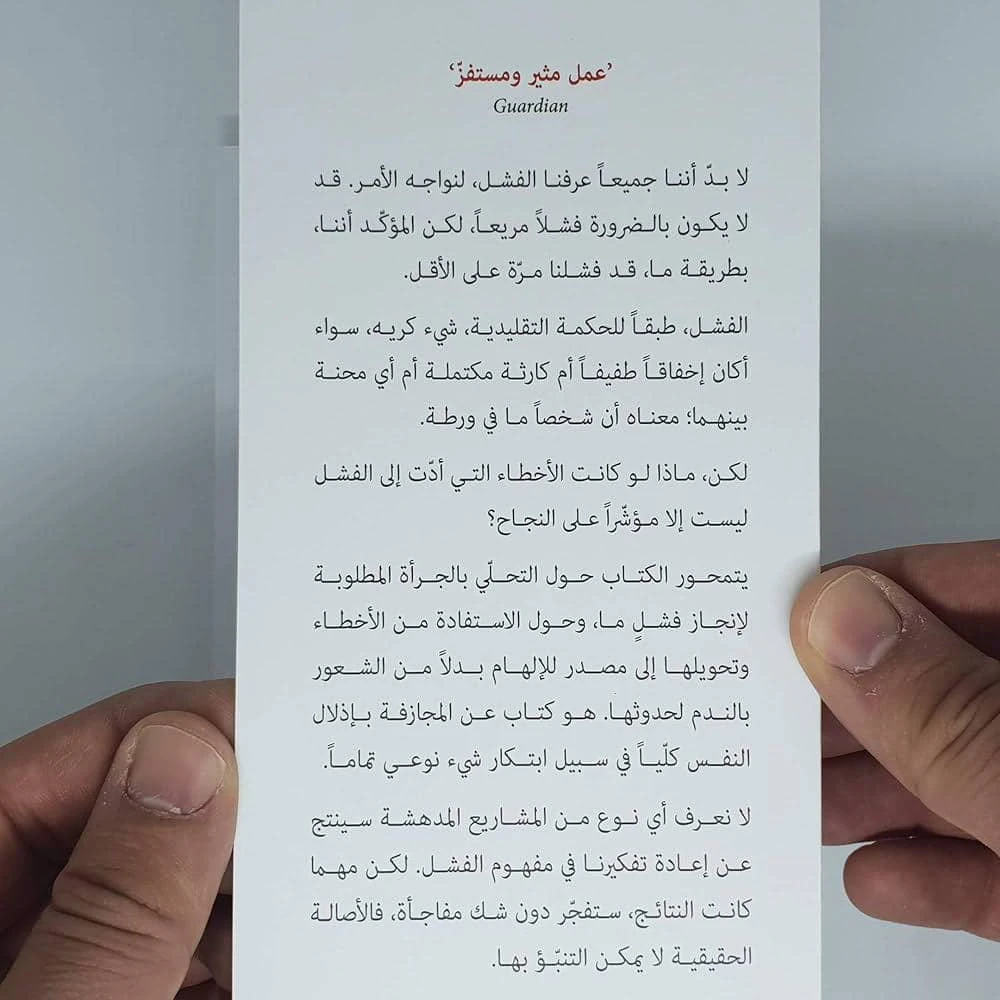 ’عمل مثير ومستفزّ‘
Guardian
لا بدّ أننا جميعاً عرفنا الفشل، لنواجه الأمر. قد
لا يكون بالضرورة فشلاً مريعاً، لكن المؤكّد أننا،
بطريقة ما، قد فشلنا مرّة على الأقل.
الفشل، طبقاً للحكمة التقليدية، شيء كريه، سواء
أكان إخفاقاً طفيفاً أم كارثة مكتملة أم أي محنة
بينهما؛ معناه أن شخصاً ما في ورطة.
لكن، ماذا لو كانت الأخطاء التي أدّت إلى الفشل
ليست إلا مؤشّراً على النجاح؟
يتمحور الكتاب حول التحلّي بالجرأة المطلوبة
لإنجاز فشلٍ ما، وحول الاستفادة من الأخطاء
وتحويلها إلى مصدر للإلهام بدلاً من الشعور
بالندم لحدوثها. هو كتاب عن المجازفة بإذلال
النفس كلّياً في سبيل ابتكار شيء نوعي تماماً.
لا نعرف أي نوع من المشاريع المدهشة سينتج
عن إعادة تفكيرنا في مفهوم الفشل. لكن مهما
كانت النتائج، ستفجّر دون شك مفاجأة، فالأصالة
الحقيقية لا يمكن التنبّؤ بها.